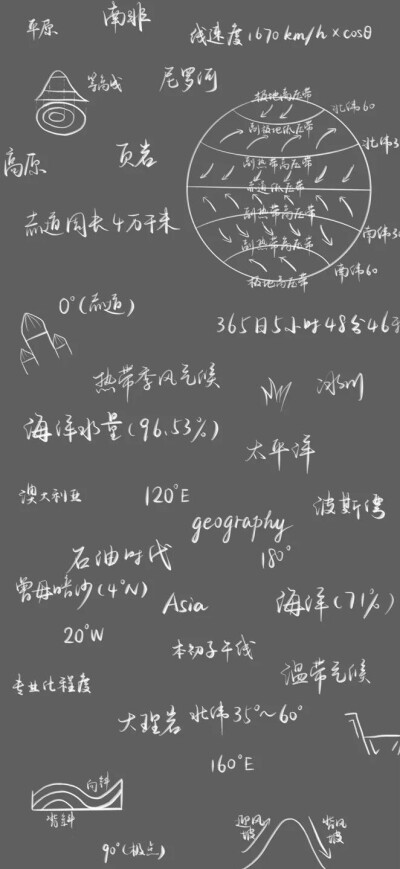 南非
平原
线速度1670km/h×cosθ
等高线
尼罗河
极地高压带
北纬60
副极地低压带
北纬3
副热带高压带
高原
页岩
赤道低压带
副热带高压带
赤道周长4万千米
南纬30
副热带高压带
南纬60
极地高压带
0°(赤道)
365日5小时48分46
热带季风气候
冰川
海洋水量(96.53%)
太平洋
澳大利亚
120°E
波斯湾
geography
石油时代
180°
曾母暗沙(4°N)
Asia
海洋(71%)
20°W
本初子午线
温带气候
专业化程度
大理岩
北纬35°~60°
160°E
向斜
背斜
迎风坡
背风坡
90°(极点)